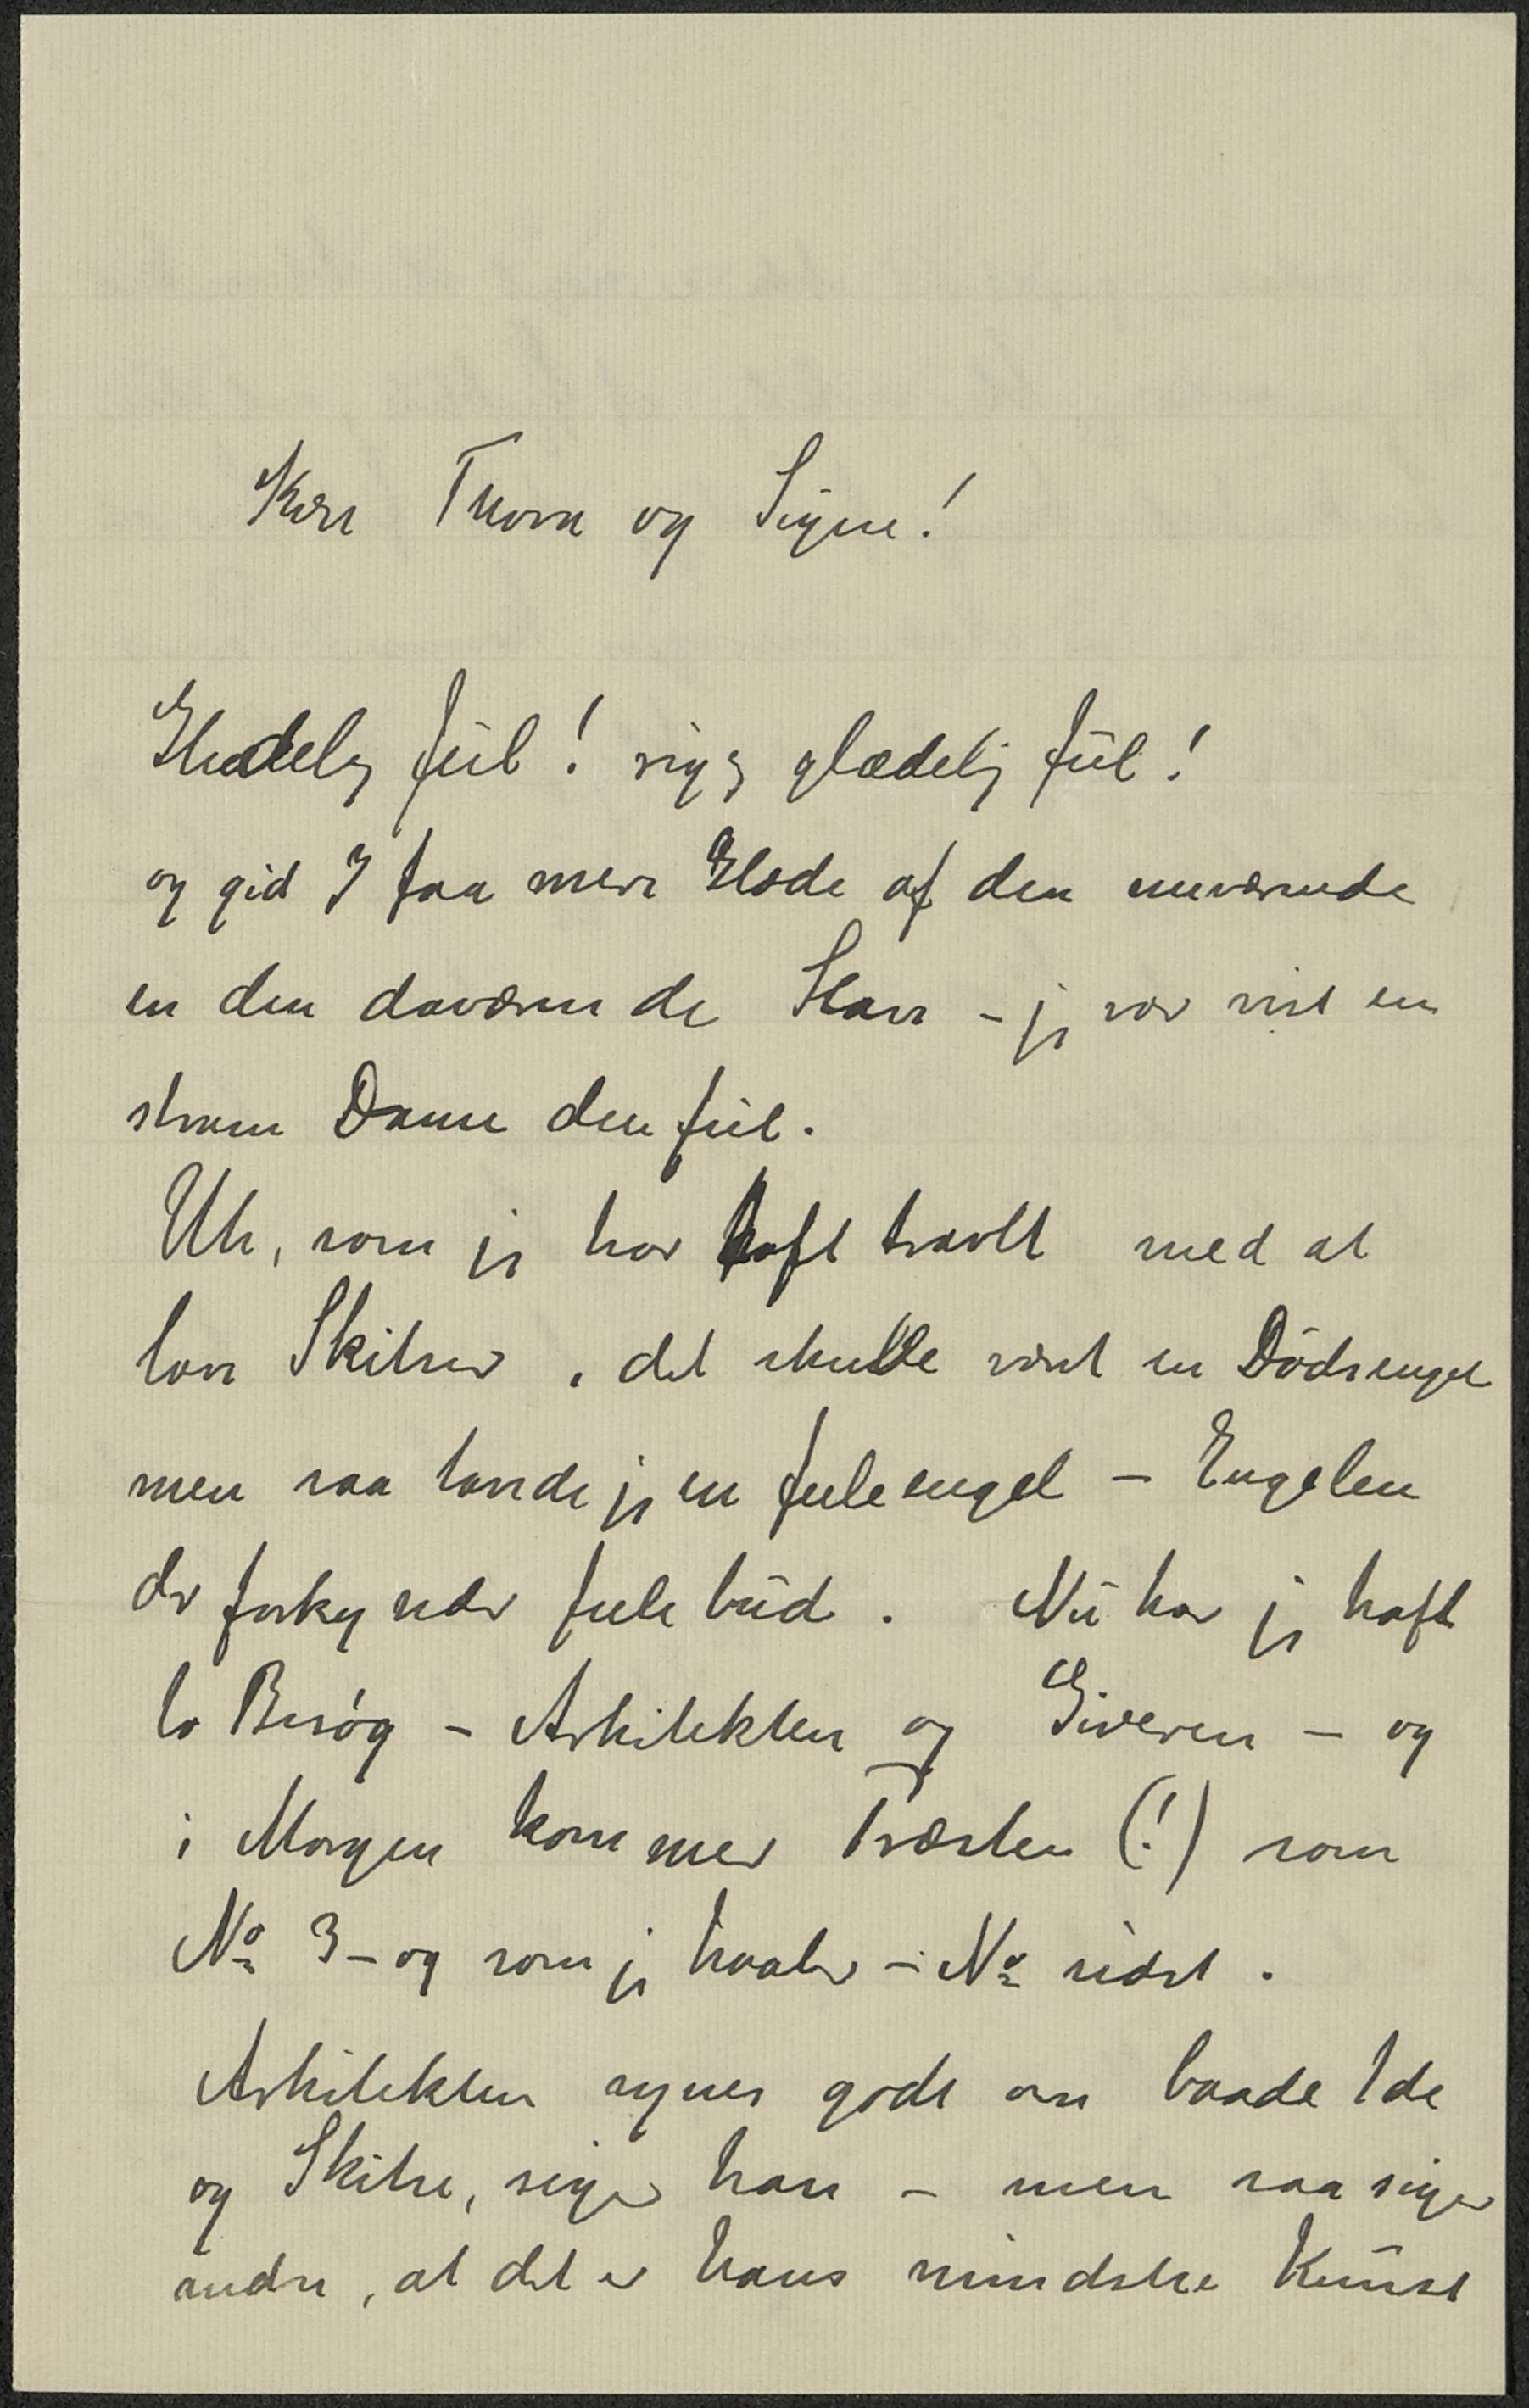 Kære Thora og Signe!
Glædelig Jul! rigtig glædelig Jul!
og gid I faa mere Glæde af den nuværende
en den daværende Gave – jeg var vist en
stram Dame den Jul.
Uh, som jeg har haft travlt med at
lave Skitser, det skulde været en Dødsengel
men saa lavede jeg en Juleengel – Engelen
der forkynder Julebud. Nu har jeg haft
to Besøg – Arkitekten og Giveren – og
i Morgen kommer Præsten (!) som
No 3 – og som jeg haaber – No sidst.
Arkitekten synes godt om baade Ide
og Skitse, siger han – men saa siger
andre, at det er hans mindste Kunst